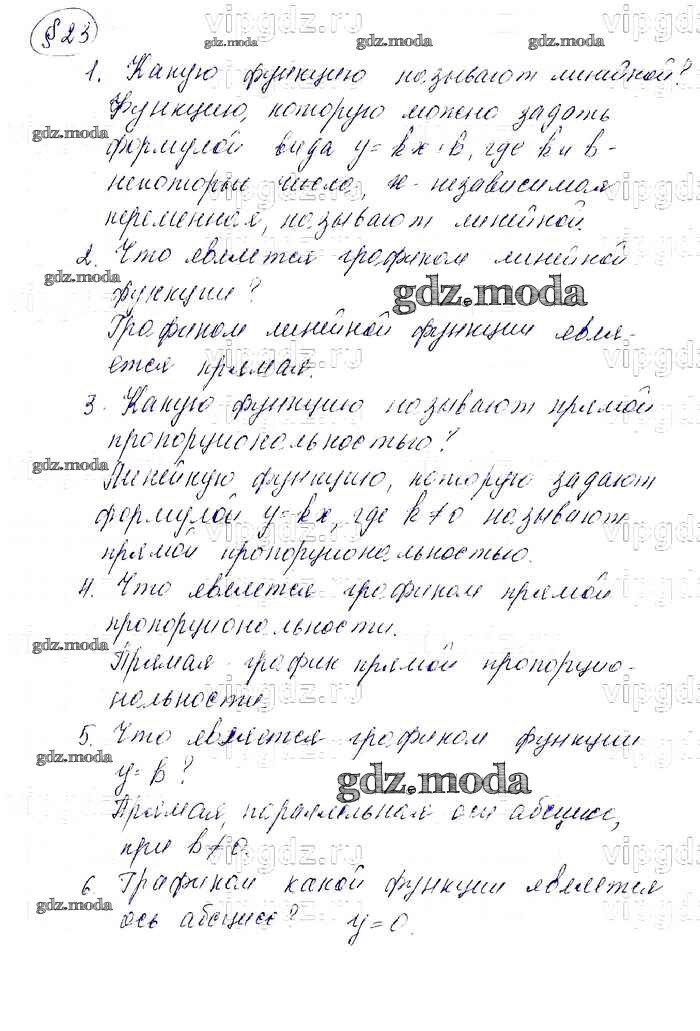 § 23
1. Какую функцию называют линейной?
Функцию, которую можно задать
формулой вида y = kx + b, где k и b -
некоторые числа, x - независимая
переменная, называют линейной.
2. Что является графиком линейной
функции?
Графиком линейной функции явля-
ется прямая.
3. Какую функцию называют прямой
пропорциональностью?
Линейную функцию, которую задают
формулой y = kx, где k ≠ 0 называют
прямой пропорциональностью.
4. Что является графиком прямой
пропорциональности.
Прямая - график прямой пропорцио-
нальности.
5. Что является графиком функции
y = b?
Прямая, параллельная оси абсцисс,
при b ≠ 0.
6. Графиком какой функции является
ось абсцисс? y = 0.
gdz.moda
vipgdz.ru